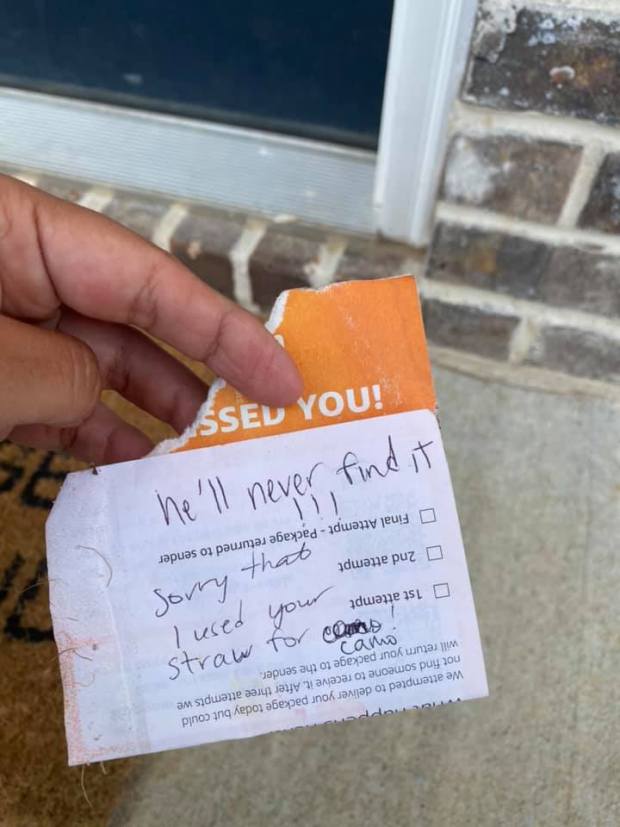 ISSED YOU!
he'll never find it
!!!
Sorry that
I used your
straw for camo!
What happens
We attempted to deliver your package today but could
not find someone to receive it. After three attempts we
will return your package to the sender.
1st attempt
2nd attempt
Final Attempt - Package returned to sender